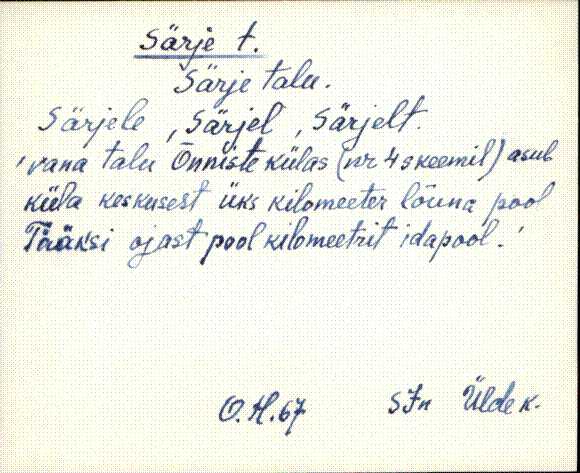 Särje t.
Särje talu.
Särjele, Särjel, Särjelt.
'vana talu Õnniste külas (nr 4 skeemil) asub
küla keskusest üks kilomeeter lõuna pool
Tääksi ojast pool kilomeetrit idapool.'
O.H.67 SJn Üldek.